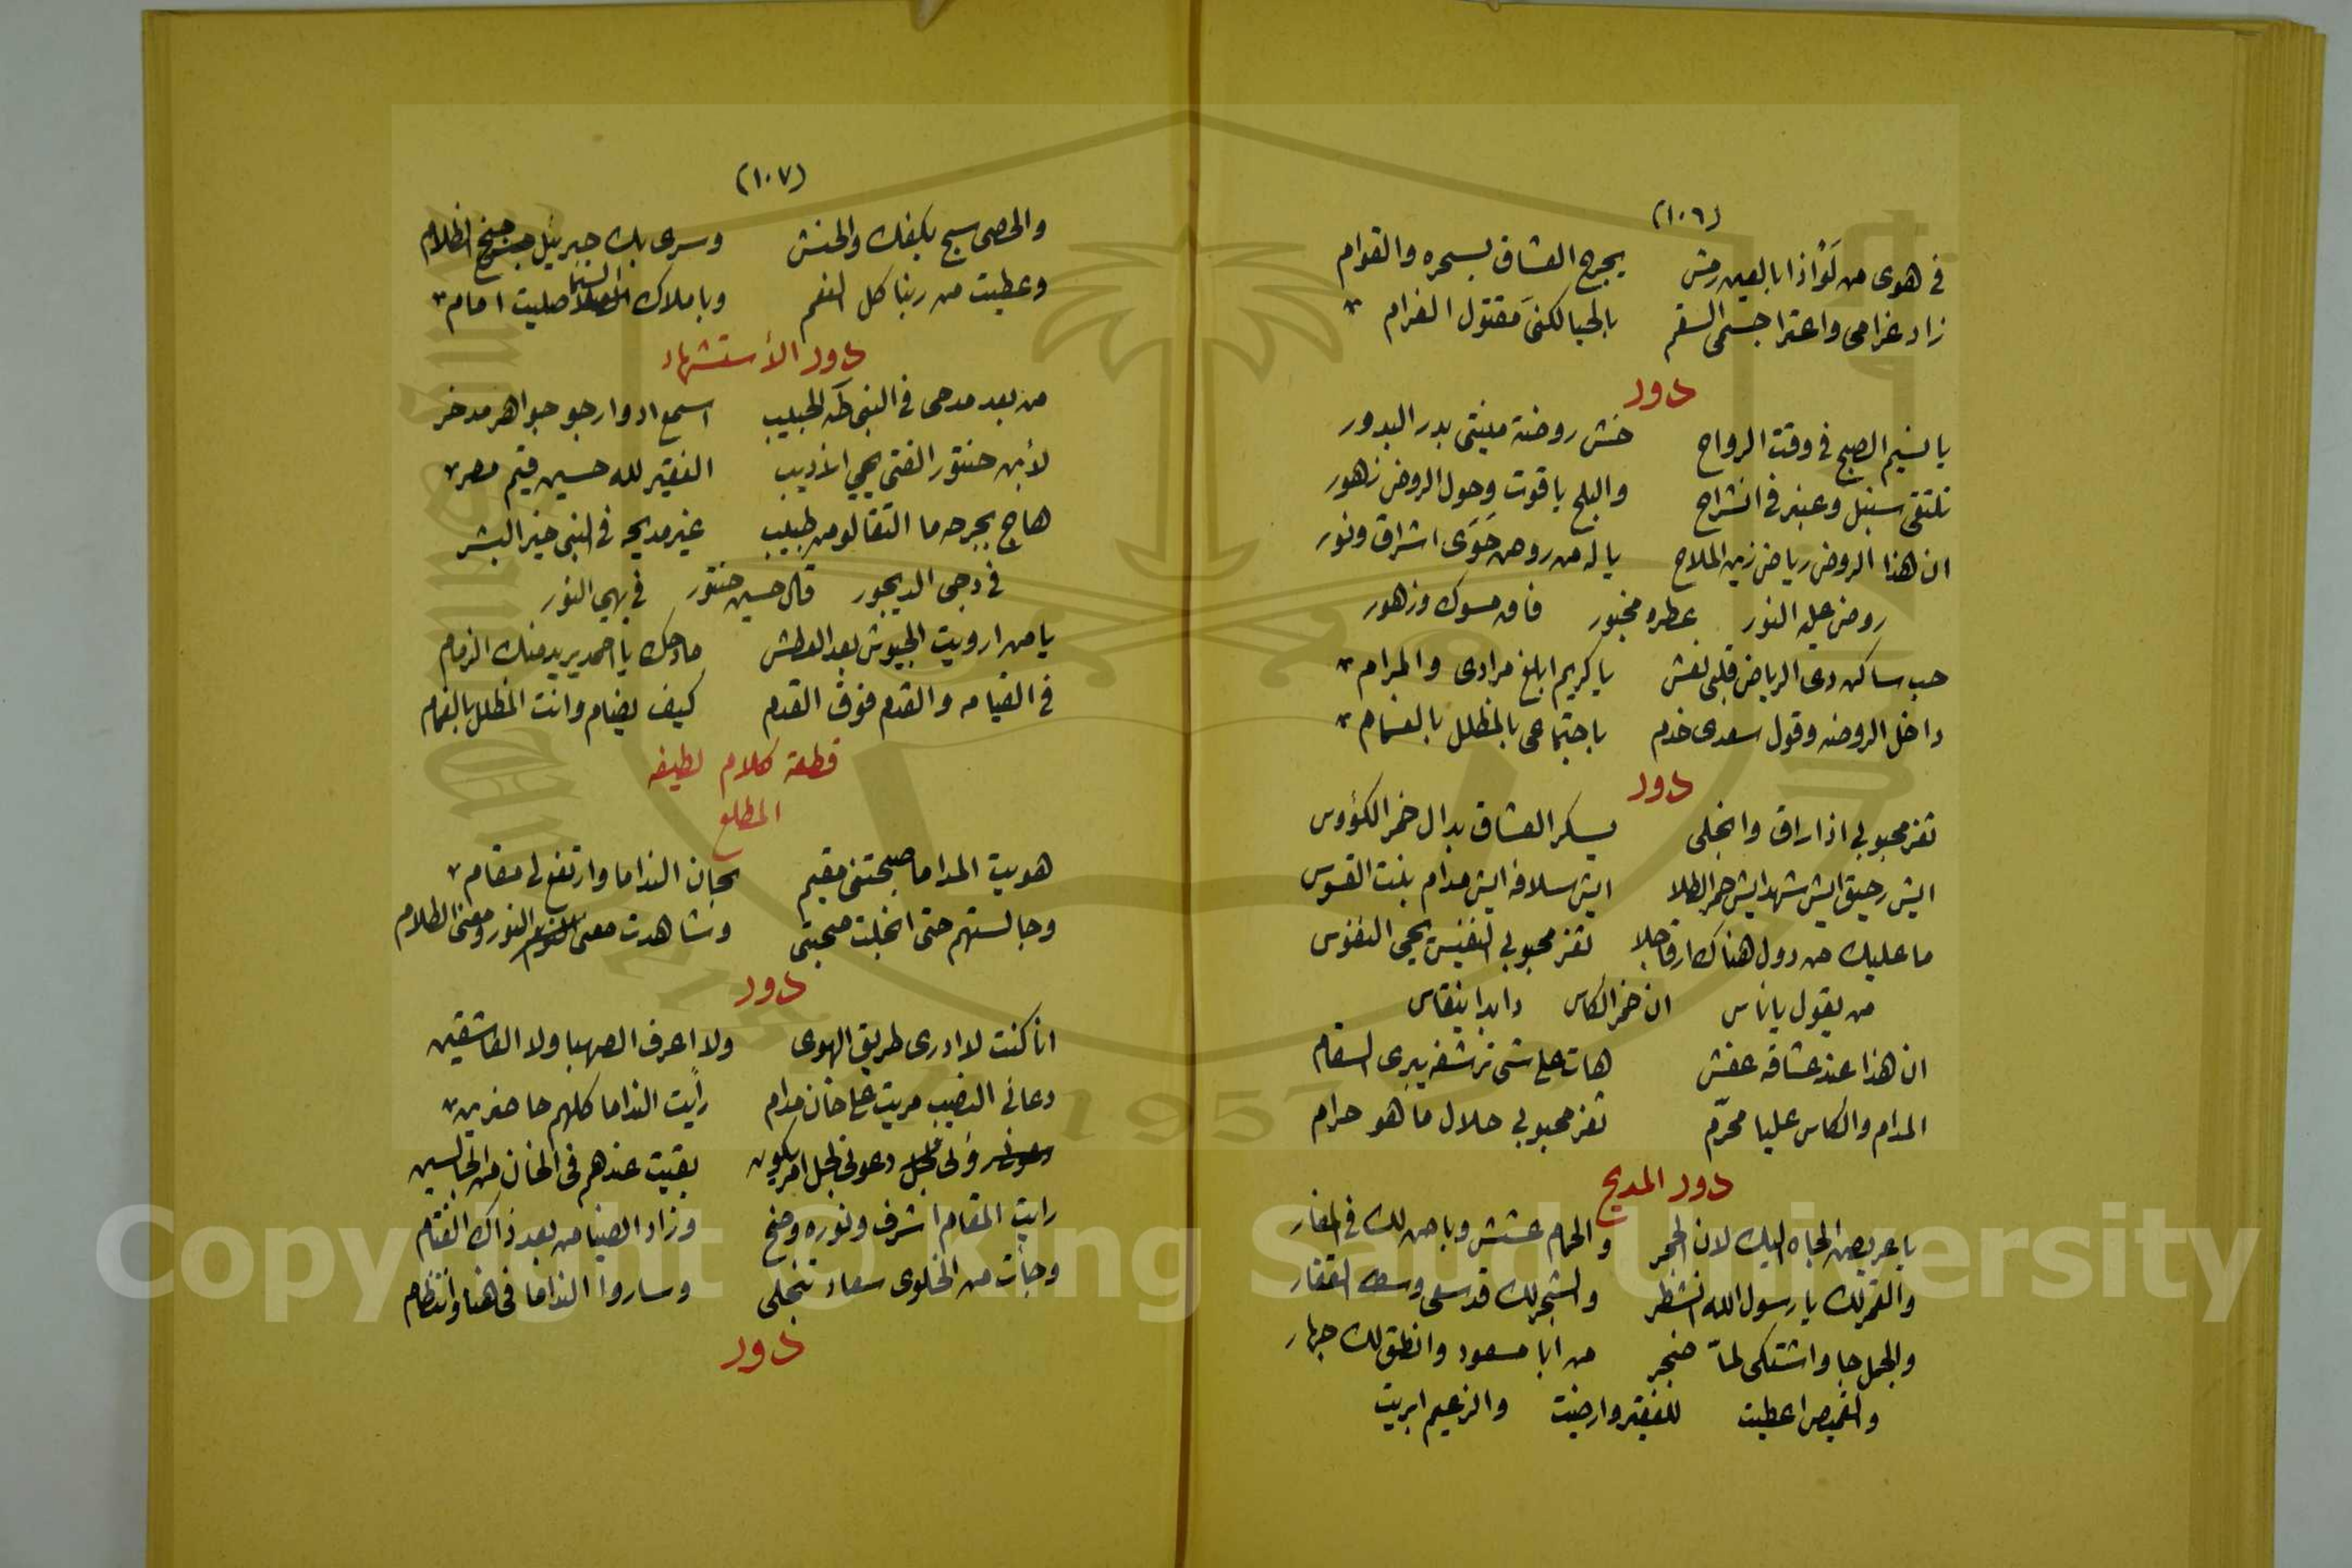 (١٠٦)
في هوى من لَوْ اذا بالعين رمش يجرح العشاق بسحره والقوام
زاد غرامى واعترا جسمى السقم بالحيا لكنى مقتول الغرام
دور
يا نسيم الصبح فى وقت الرواح خش روضة منيتى بدر البدور
تلتقى سنبل وعنبر فى انشراح والبلح ياقوت وحول الروض زهور
ان هذا الروض رياض زين الملاح ياله من روض حَوَى اشراق ونور
روض عليه النور عطره مخبور فاق مسوك وزهور
حب ساكن دى الرياض قلبى نعش ياكريم ابلغ مرادى والمرام
داخل الروضه وقول سعدى خدم باجتماعى بالمظلل بالغمام
دور
ثغر محبوبى اذا راق وانجلى يسكر العشاق بدال خمر الكؤوس
ايش رحيق ايش شهد ايش خمر الطلا ايش سلافه ايش مدام بنت القسوس
ما عليك من دول هناك ارقا جلا ثغر محبوبى النفيس يحيى النفوس
من يقول ياناس ان خمر الكاس دابدا ينقاس
ان هذا عند عشاقه عفش هات على شى ترشفه يبرى السقام
المدام والكاس عليا محرّم ثغر محبوبى حلال ما هو حرام
دور المديح
يا عريض الجاه اليك لان الحجر والحمام عشش وباض لك فى الغار
والقمر لك يا رسول الله انشطر والشجر لك قد سعى وسط القفار
والجمل جا واشتكى لمّا ضجر من ابا مسعود وانطق لك جهار
والقميص اعطيت للفقير وارضيت والزعيم ابريت
(١٠٧)
والحصى سبح بكفك والحنش وسرى بك جبرئيل جنح الظلام
وعطيت من ربنا كل النعم وباملاك السما صليت امام
دور الأستشهاد
من بعد مدحى فى النبى طه الحبيب اسمع ادوار جو جواهر مدخر
لأبن حنتور الفتى يحيي الأديب الفقير لله حسين قيم مصر
هاج بجرحه ما التقالو من طبيب غير مديحه فى النبى خير البشر
فى دجى الديجور قال حسين حنتور فى بهى النور
يا من ارويت الجيوش بعد العطش مادحك يا احمد يريد منك الزمام
فى القيامه والقدم فوق القدم كيف يضام وانت المظلل بالغمام
قطعة كلام لطيفه
المطلع
هويت المداما صبحتنى مقيم بحان النداما وارتفع لى مقام
وجالستهم حتى انجلت محبتى وشاهدت معنى النور ومعنى الظلام
دور
انا كنت لا ادرى طريق الهوى ولا اعرف الصهبا ولا العاشقين
دعانى النصيب مريت على خان مدام رأيت النداما كلهم حاضرين
دعونى لجل امر يكون بقيت عندهم فى الحان من الجالسين
رايت المقام اشرف ونوره وضح وزاد الضيا من بعد ذاك القتام
وجأت من الخلوى سعاد تنجلى وساروا النداما فى هنا وانتظام
دور
Copyright © King Saud University
1957